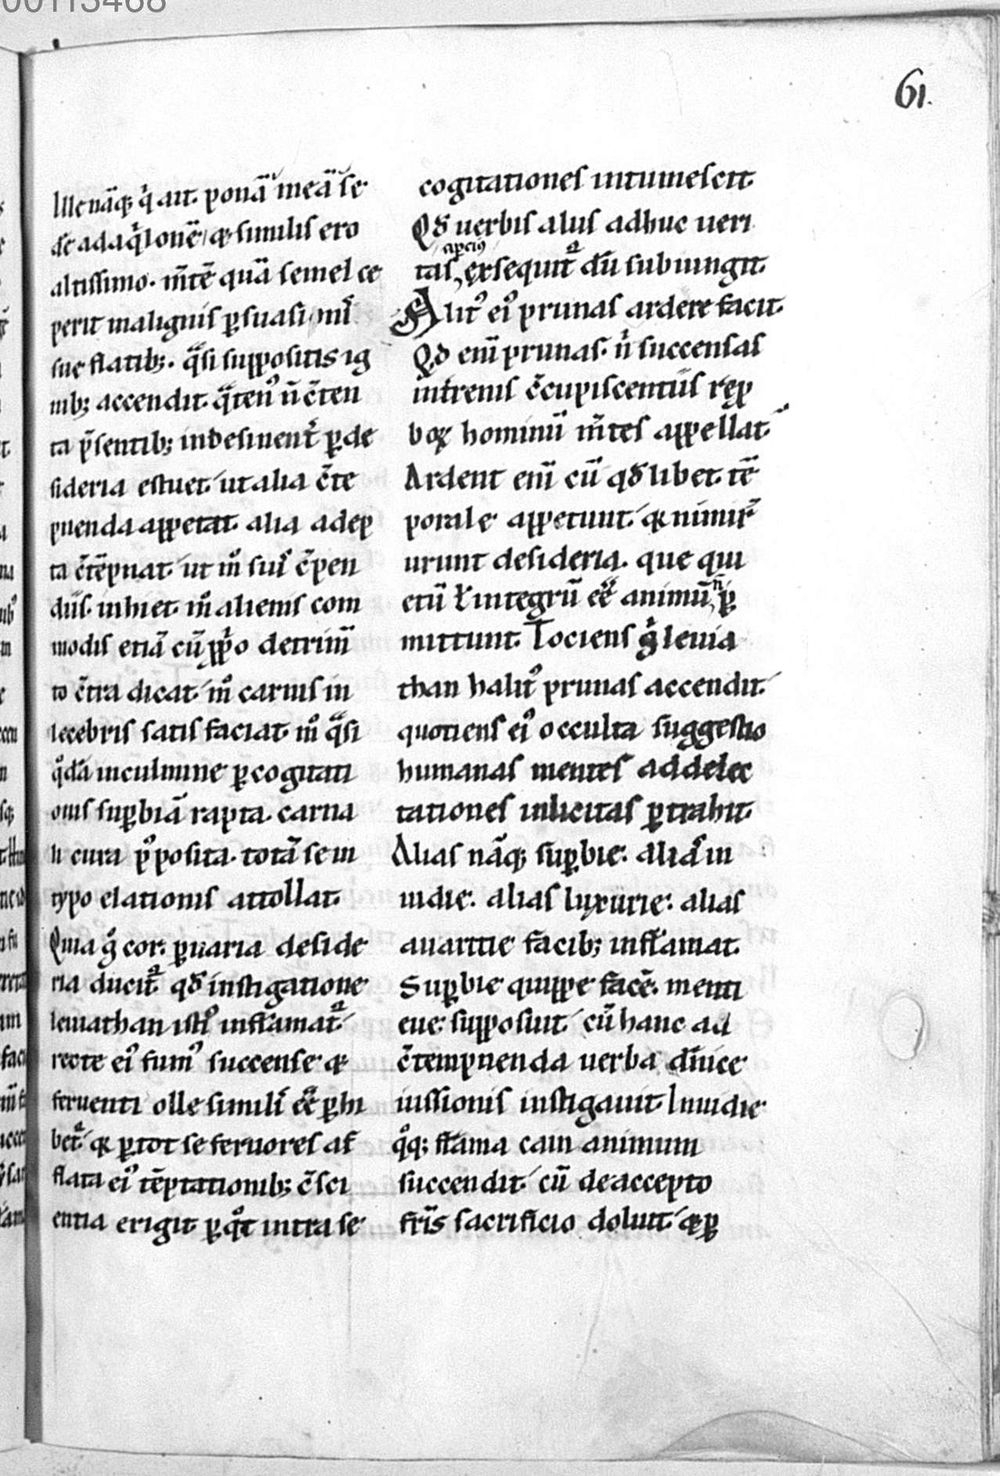 00113468
61.
Ille nāq; q̇ ait. ponā meā se
dē ad aq̇lonē, & similis ero
altissimo. m̄tē quā semel ce
perit malignis p̱suasionı̄
sue flatib; q̄si suppositis ig
nib; accendit. q̄ten᾿ n̄ c̄ten
ta p̄sentib; indesinent̄ p̱ de
sideria estuet. ut alia c̄te
pnenda appetat. alia adep
ta c̄tēpnat. ut m̊ sui᾿ c̄pen
diis. inhiet. m̊ alienis com
modis etiā cū pp̊o detrim̄
to c̄tra dicat. m̊ carnis in
lecebris satis faciat. m̊ q̄si
q̊dā in culmine p̱ cogitati
onis sup̱biā rapta. carna
li cura p̊posita. totā se in
typo elationis attollat.
Quia g̊ cor. p̱ uaria deside
ria ducit᷒ qđ instigatione
leuiathan isti᾿ inflamat᷒
recte ei᾿ fum᾿ succense &
feruenti olle simil̄ ēe p̱hi
bet᷒. & p̱ tot se feruores af
flata ei᾿ tēptationib; c̄sci
entia erigit. p̱ q̊t intra se
cogitationes intumescit.
Qđ uerbis aliis adhuc ueri
apcius
tas, exsequit᷒ dū subiungit.
Alit᾿ ei᾿ prunas ardere facit.
Qđ enı̄ prunas. n̊ succensas
in trenis c̄cupiscentiis rep̱
boꝝ hominū m̄tes appellat.
Ardent enı̄ cū qđ libet tē
porale appetunt. & nimir̄
urunt desideria. que qui
n̄
etū ł integrū ēe animū, p̱
mittunt. Tociens g̊ leuia
than halit᾿ prunas accendit.
quotiens ei᾿ occulta suggestio
humanas mentes ad delec
tationes inlicitas p̱trahit.
Alias nāq; sup̱bie. alias in
uidie. alias luxurie. alias
auaritie facib; inflāmat.
Sup̱bie quippe facē. menti
eue. supposuit. cū hanc ad
c̄tempnenda uerba diuice
iussionis instigauit. Inuidie
q̊q; flāma cain animum
succendit. cū de accepto
fr̄is sacrificio doluit. & p̱